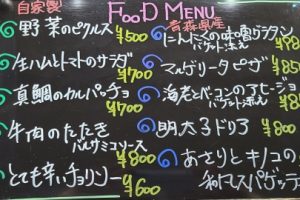 FOOD MENU
自家製
野菜のピクルス ¥500
生ハムとトマトのサラダ ¥700
真鯛のカルパッチョ ¥700
牛肉のたたき
バルサミコソース ¥800
とても辛いチョリソー ¥600
青森県産
にんにくの味噌グラタン
バゲット添え
マルゲリータピザ ¥85
海老とベーコンのアヒージョ
バゲット添え ¥8
明太子ドリア ¥80
あさりとキノコの
和風スパゲッティ